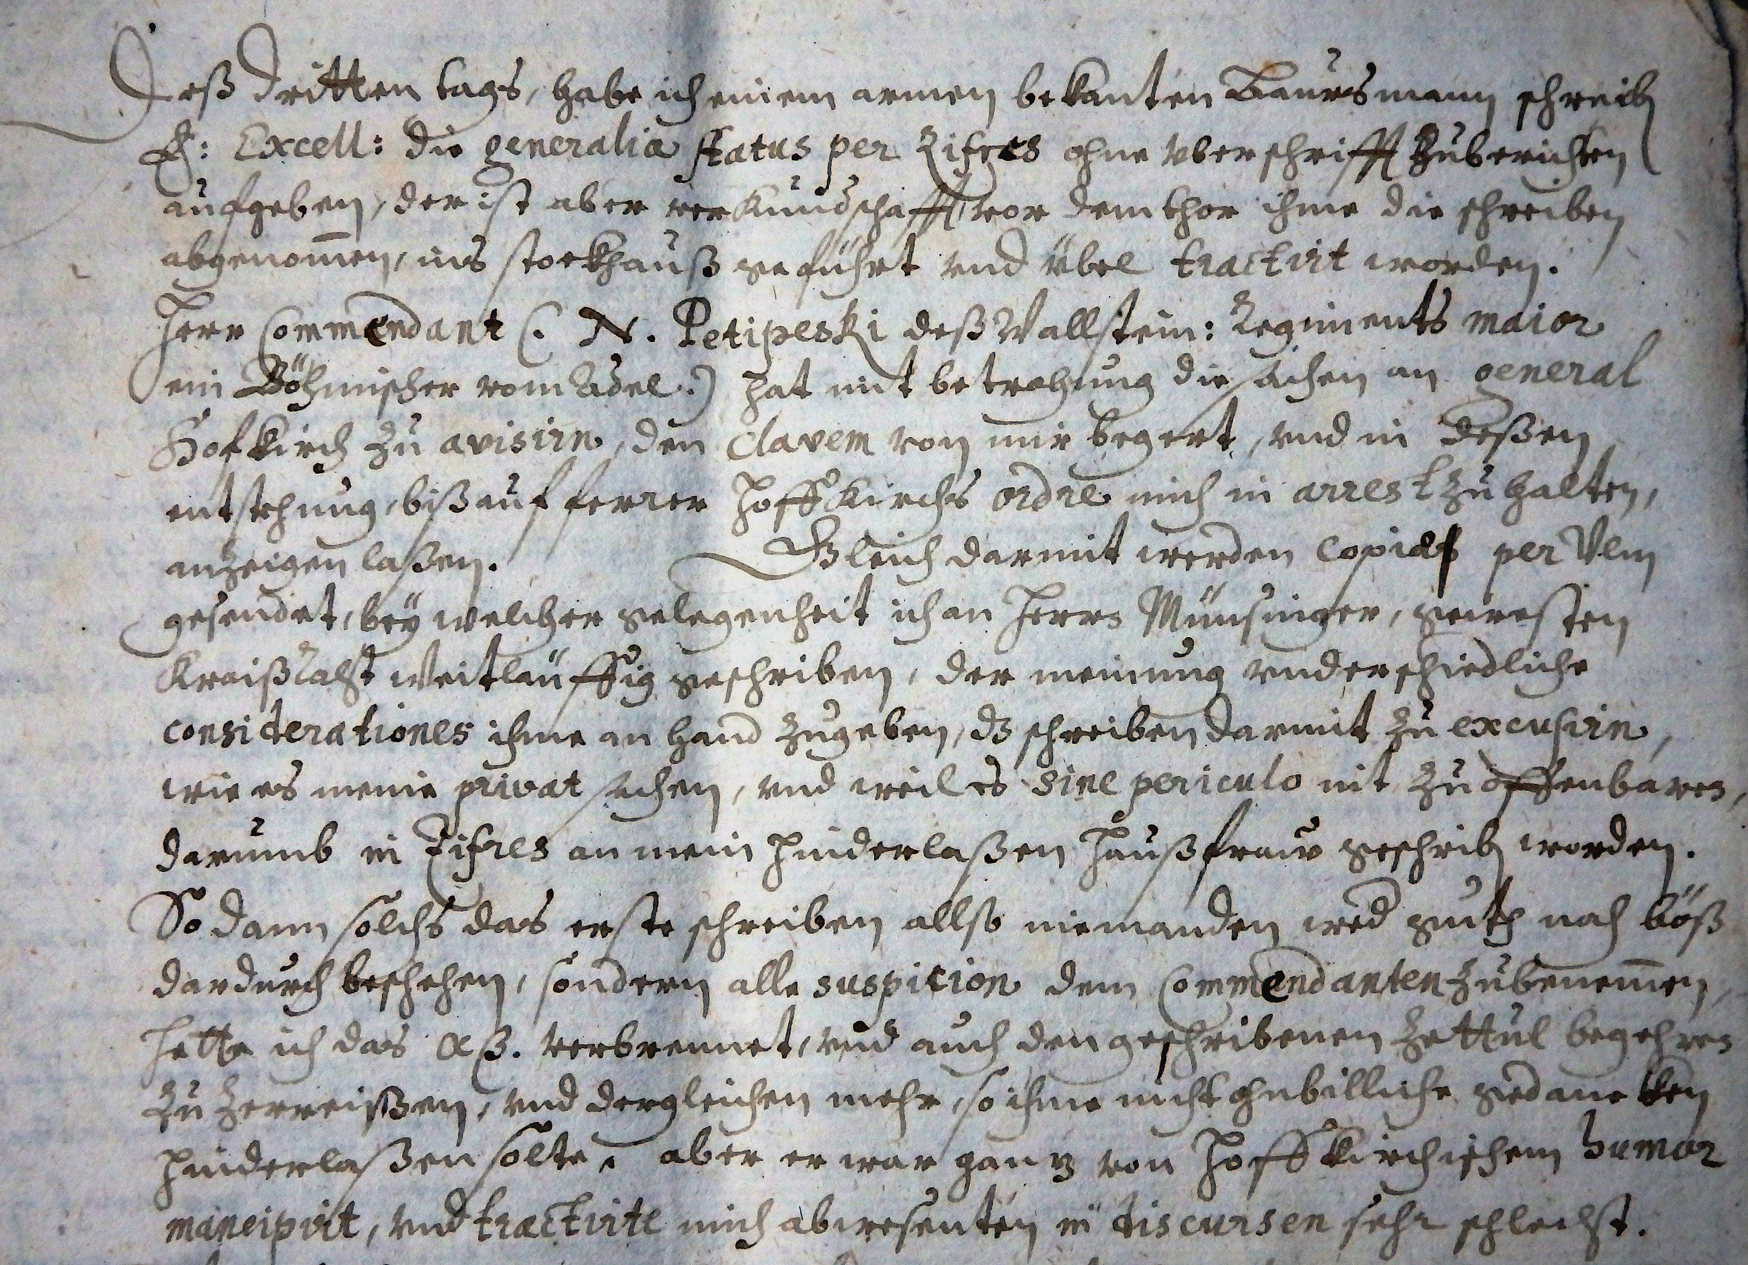 Deß dritten tags, habe ich einem armen bekanten Baursmann schreiben
E: Excell: die generalia status per Zifres ohne vberschrifft zuberichten
aufgeben, der ist aber verkundschafft, vor dem thor ihme die schreiben
abgenom̄en, ins stockhauß geführt vnd übel tractirt worden.
Herr Commendant (. N. Petipeski deß Wallstein: Regiments maior
ein Böhmischer vom Adel.) hat mit betrohung die sachen an general
Hofkirch zu avisirn, den Clavem von mir begert, vnd in deßen
entstehung, biß auf ferrer Hoffkirchs ordre mich in arrest zu halten,
anzeigen laßen. Gleich darmit werden Copias per Vlm
gesendet, bey welcher gelegenheit ich an Herrn Münsinger, gewesten
Kraiß Raht weitläuffig geschriben, der meinung vnderschiedliche
considerationes ihme an hand zugeben, dz schreiben darmit zu excusirn,
wie es meine privat sachen, vnd weil es sine periculo nit zu offenbaren,
darumb in Zifres an mein hinderlaßen haußfraw geschriben worden.
So dann solchs das erste schreiben allso niemanden wed guts noch böß
dardurch beschehen, sondern alle suspicion dem Commendanten zubenem̄en,
hette ich das αβ. verbrennet, vnd auch den geschribenen Zettul begehren
zu zerreißen, vnd dergleichen mehr, so ihme nicht ohnbilliche gedancken
hinderlaßen solte, aber er war gantz von Hoffkirchischem humor
mancipirt, vnd tractirte mich abwesenten in discursen sehr schlechst.